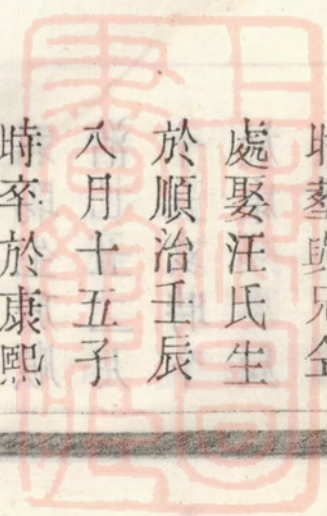 時塟與兄仝
處娶汪氏生
於順治壬辰
八月十五子
時卒於康熙